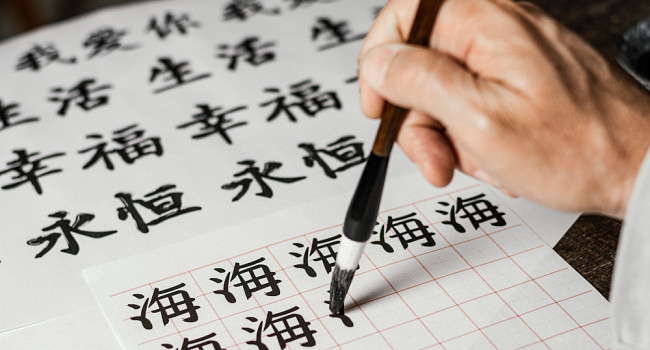 我爱你 我
生活 生活 生
幸福 幸福
永恒 永恒
海海海海海
海海